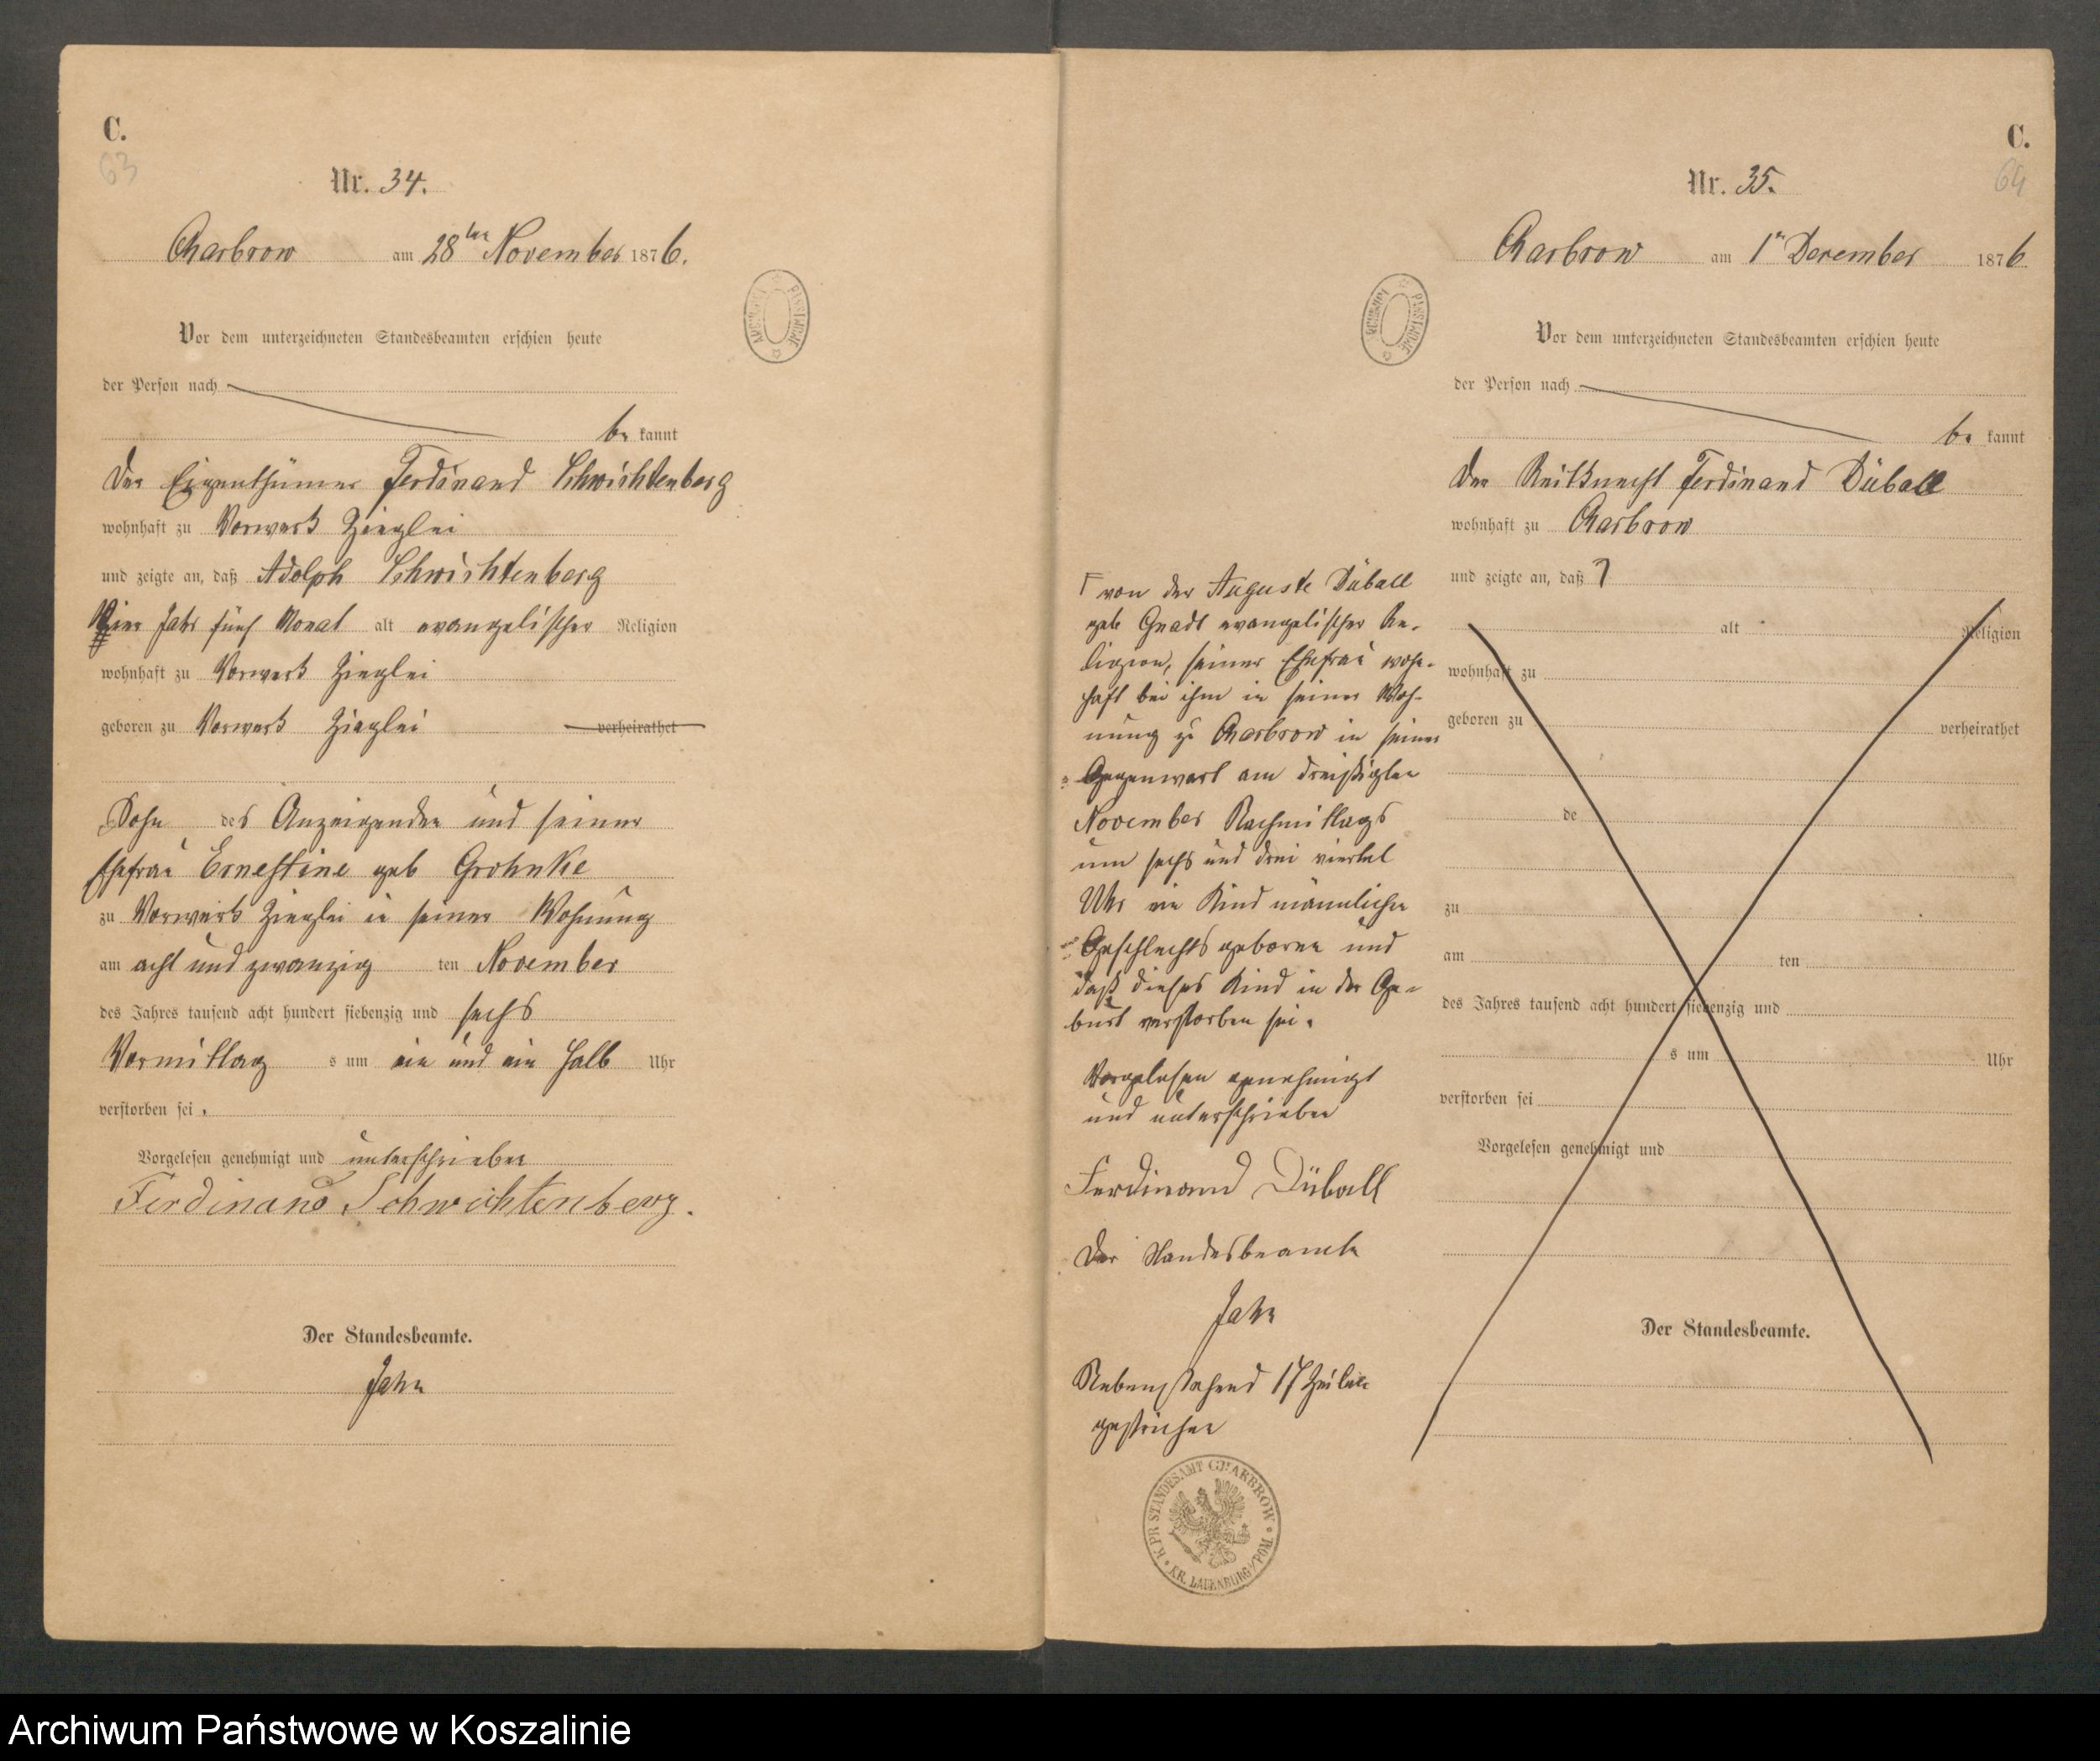 C.
63
Nr. 34.
Charbrow am 28ten November 1876.
Vor dem unterzeichneten Standesbeamten erschien heute
der Person nach
be kannt
der Eigenthümer Ferdinand Schwichtenberg
wohnhaft zu Vorwerk Zieglei
und zeigte an, daß Adolph Schwichtenberg
Vier Jahr fünf Monat alt evangelischer Religion
wohnhaft zu Vorwerk Zieglei
geboren zu Vorwerk Zieglei verheirathet
Sohn des Anzeigenden und seiner
Ehefrau Ernestine geb Grohnke
zu Vorwerk Zieglei in seiner Wohnung
am acht und zwanzig ten November
des Jahres tausend acht hundert siebenzig und sechs
Vormittag s um ein und ein halb Uhr
verstorben sei.
Vorgelesen genehmigt und unterschrieben
Ferdinand Schwichtenberg.
Der Standesbeamte.
Jahn
ARCHIWUM PAŃSTWOWE
C.
64
Nr. 35.
Charbrow am 1n December 1876
ARCHIWUM PAŃSTWOWE
Vor dem unterzeichneten Standesbeamten erschien heute
der Person nach
be kannt
der Reitknecht Ferdinand Düball
wohnhaft zu Charbrow
und zeigte an, daß
alt Religion
wohnhaft zu
geboren zu verheirathet
de
zu
am ten
des Jahres tausend acht hundert siebenzig und
s um Uhr
verstorben sei
Vorgelesen genehmigt und
Der Standesbeamte.
von der Auguste Düball
geb Gnadt evangelischer Re-
ligion, seiner Ehefrau wohn-
haft bei ihm in seiner Woh-
nung zu Charbrow in seiner
Gegenwart am dreißigten
November Nachmittags
um sechs und drei viertel
Uhr ein Kind männlichen
Geschlechts geboren und
daß dieses Kind in der Ge-
burt verstorben sei.
Vorgelesen genehmigt
und unterschrieben
Ferdinand Düball
Der Standesbeamte
Jahn
Nebenstehend 17 Zeilen
gestrichen
K. PR. STANDESAMT CHARBROW * KR. LAUENBURG i/POM. *
Archiwum Państwowe w Koszalinie